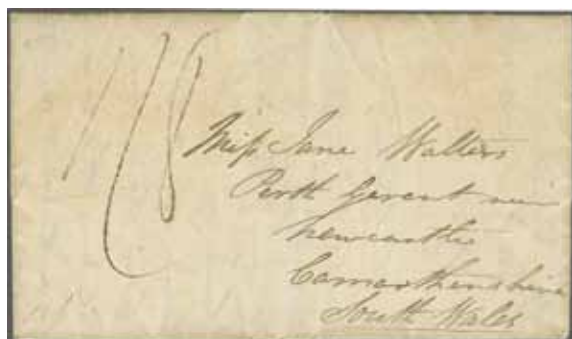 1/8
Miss Jane Walters
Perth Gerent near
Newcastle
Carmarthenshire
South Wales